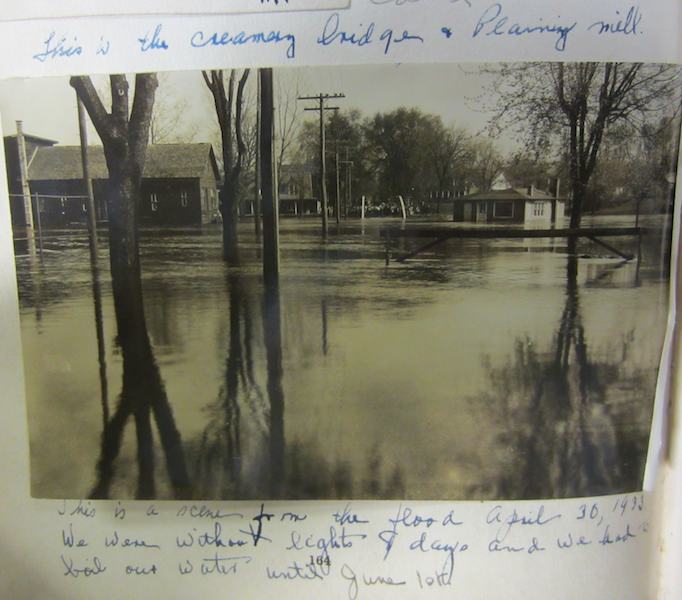 This is the creamery bridge & Plaining mill.
This is a scene from the flood April 30, 1933
We were without lights 8 days and we had
boil our water until June 10th
164